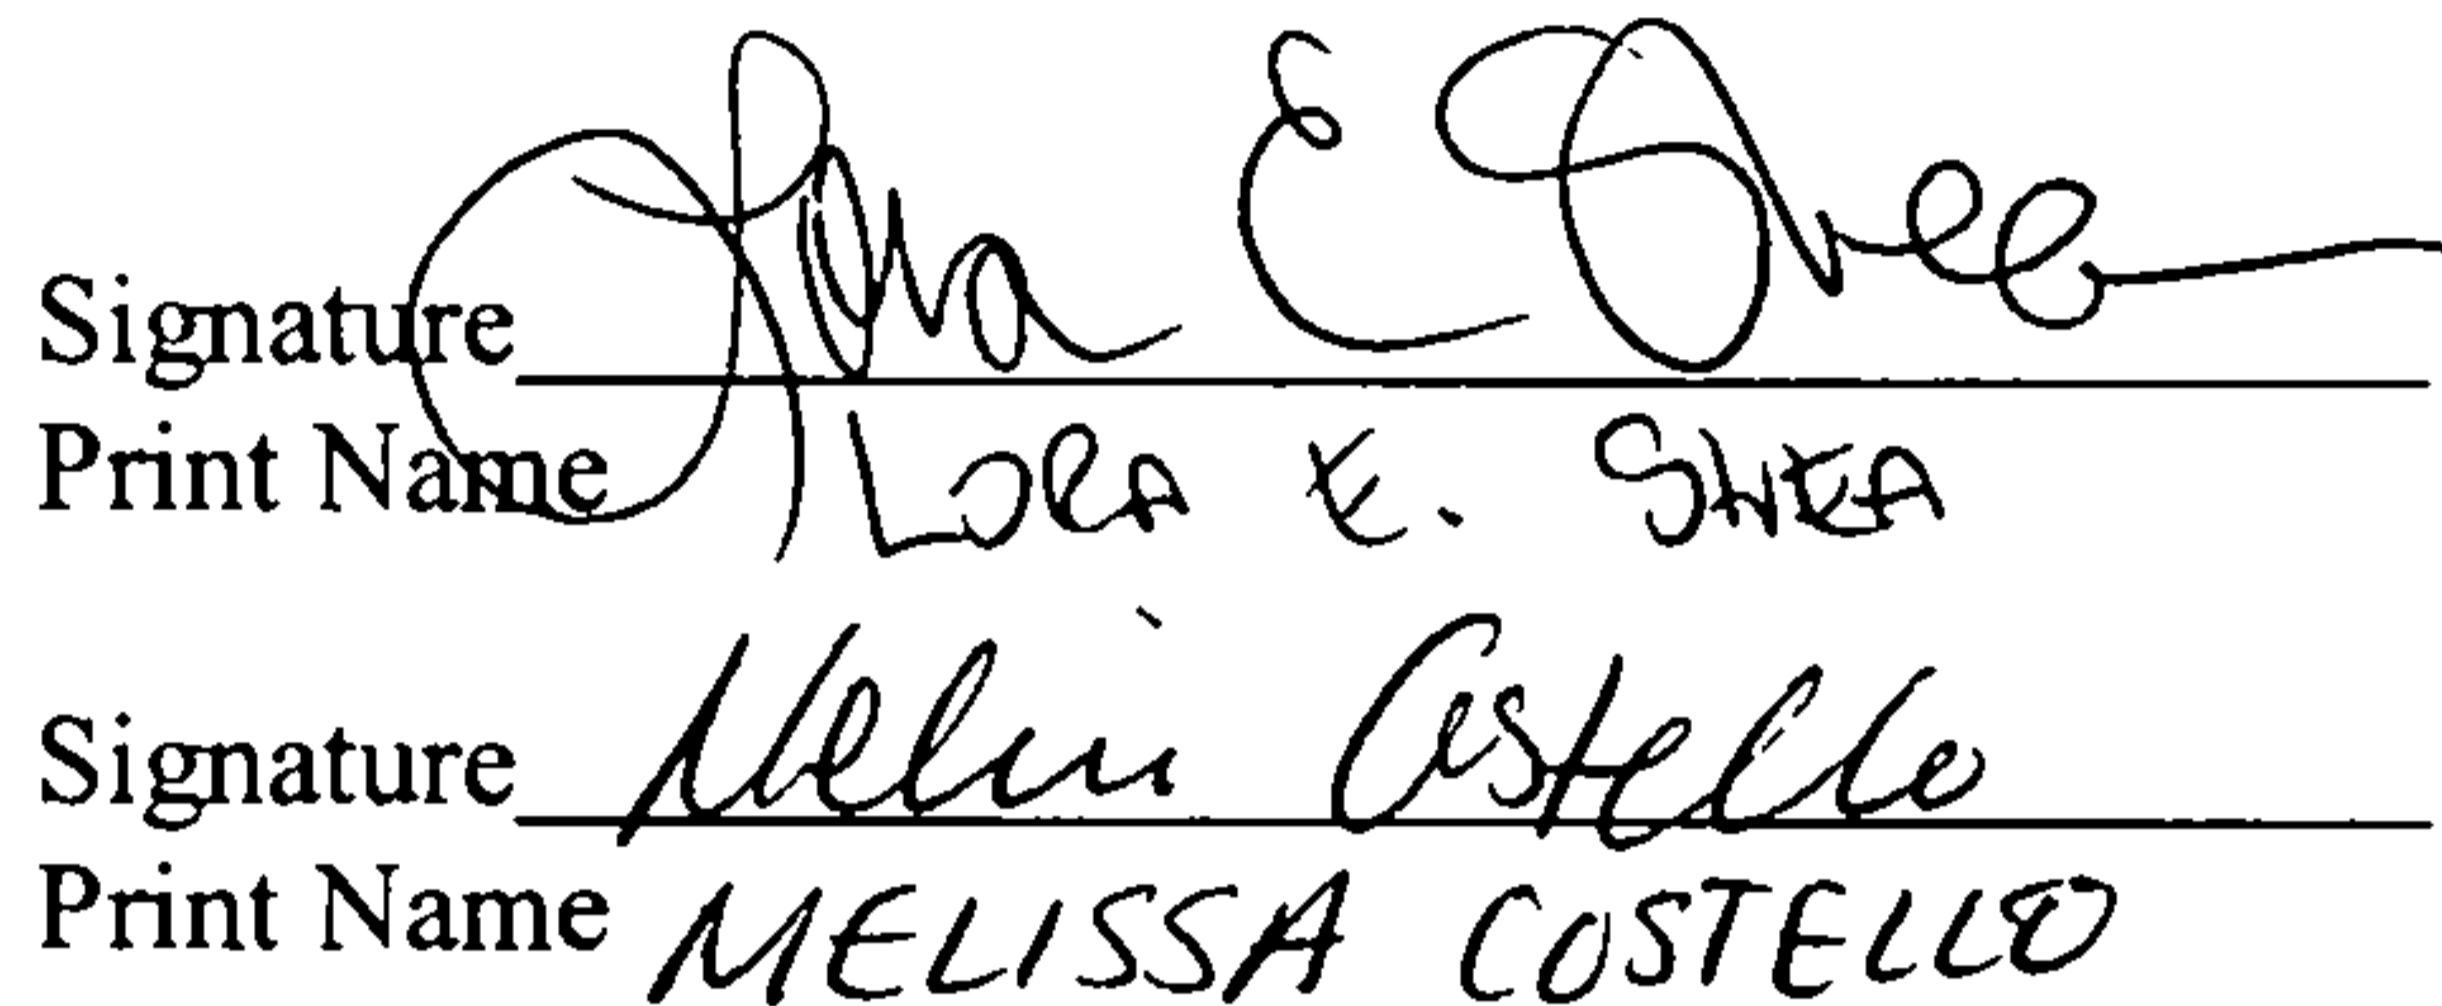 Signature Lora E Shea
Print Name LORA E. SHEA
Signature Melissa Costello
Print Name MELISSA COSTELLO